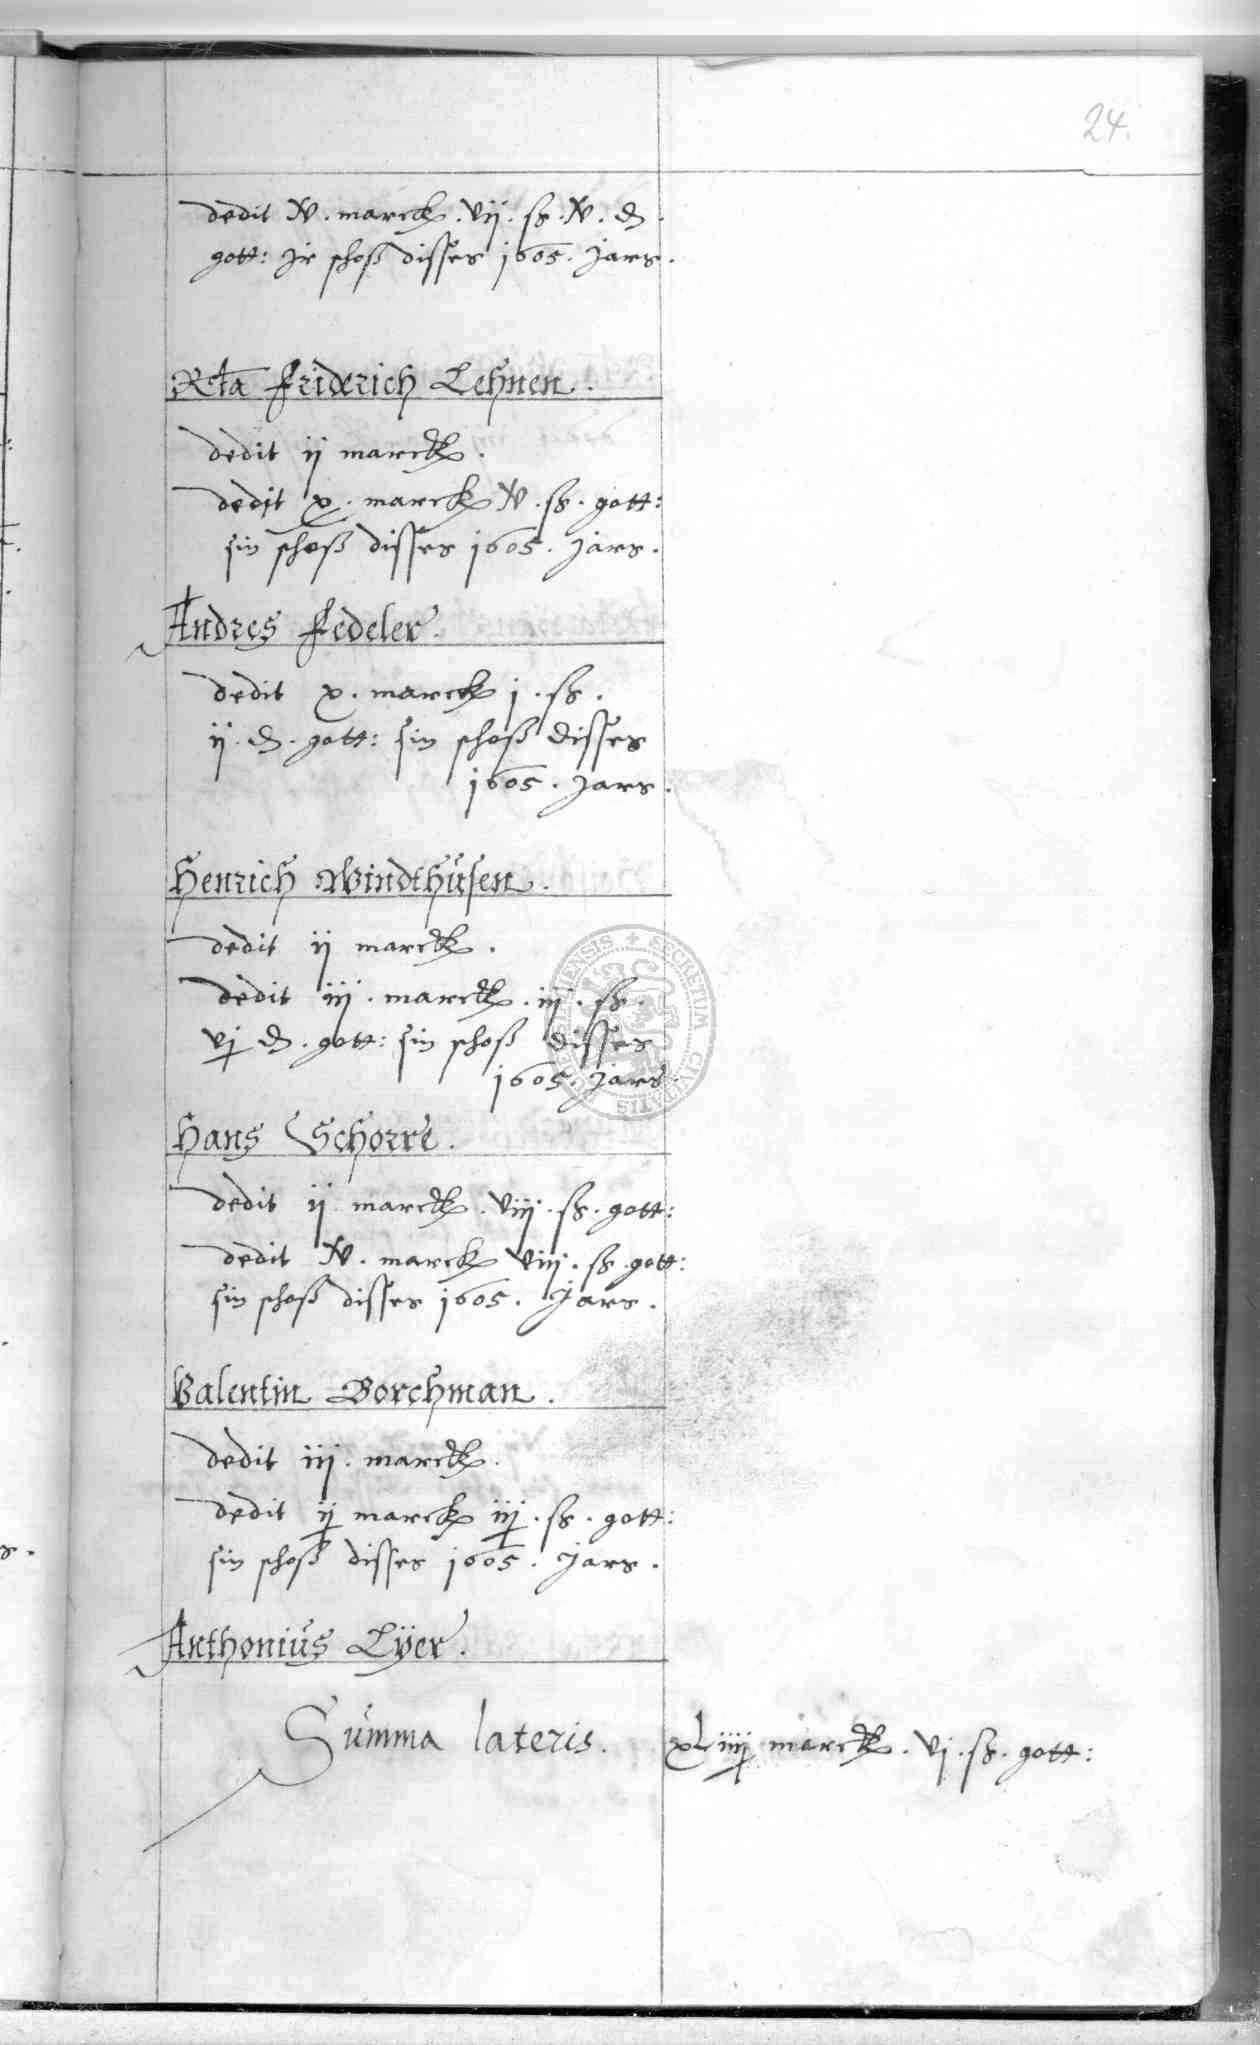 24.
dedit V. marck. vij. ß. V. d.
gott: Jr schoß disses 1605. Jars.
Rta Friderich Lehnen.
dedit ij marck.
dedit x. marck V. ß. gott:
sin schoß disses 1605. Jars.
Andres Fedeler.
dedit x. marck j. ß.
ij. d. gott: sin schoß disses
1605. Jars.
Henrich Windthusen.
dedit ij marck.
dedit iij. marck. iij. ß.
vj d. gott: sin schoß disses
1605. Jars.
SECRETUM CIVITATIS
Hans Schorre.
dedit ij. marck. viij. ß. gott:
dedit V. marck viij. ß. gott:
sin schoß disses 1605. Jars.
Valentin Borchman.
dedit iij. marck.
dedit ij marck iij. ß. gott:
sin schoß disses 1605. Jars.
Anthonius Lÿer.
Summa lateris. xLiiij marck. vj. ß. gott: